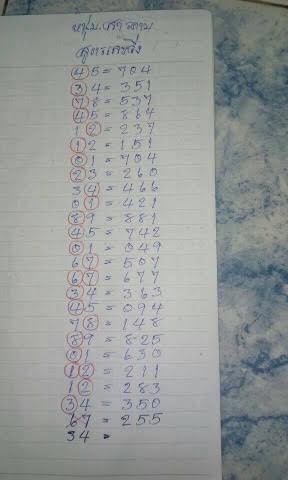 สูตรเลขวิ่ง
45 = 704
34 = 351
78 = 537
45 = 864
12 = 237
12 = 151
01 = 704
23 = 260
34 = 466
01 = 421
89 = 881
45 = 742
01 = 049
67 = 507
67 = 677
34 = 363
45 = 094
78 = 148
89 = 825
01 = 630
12 = 211
12 = 283
34 = 350
67 = 255
34 =